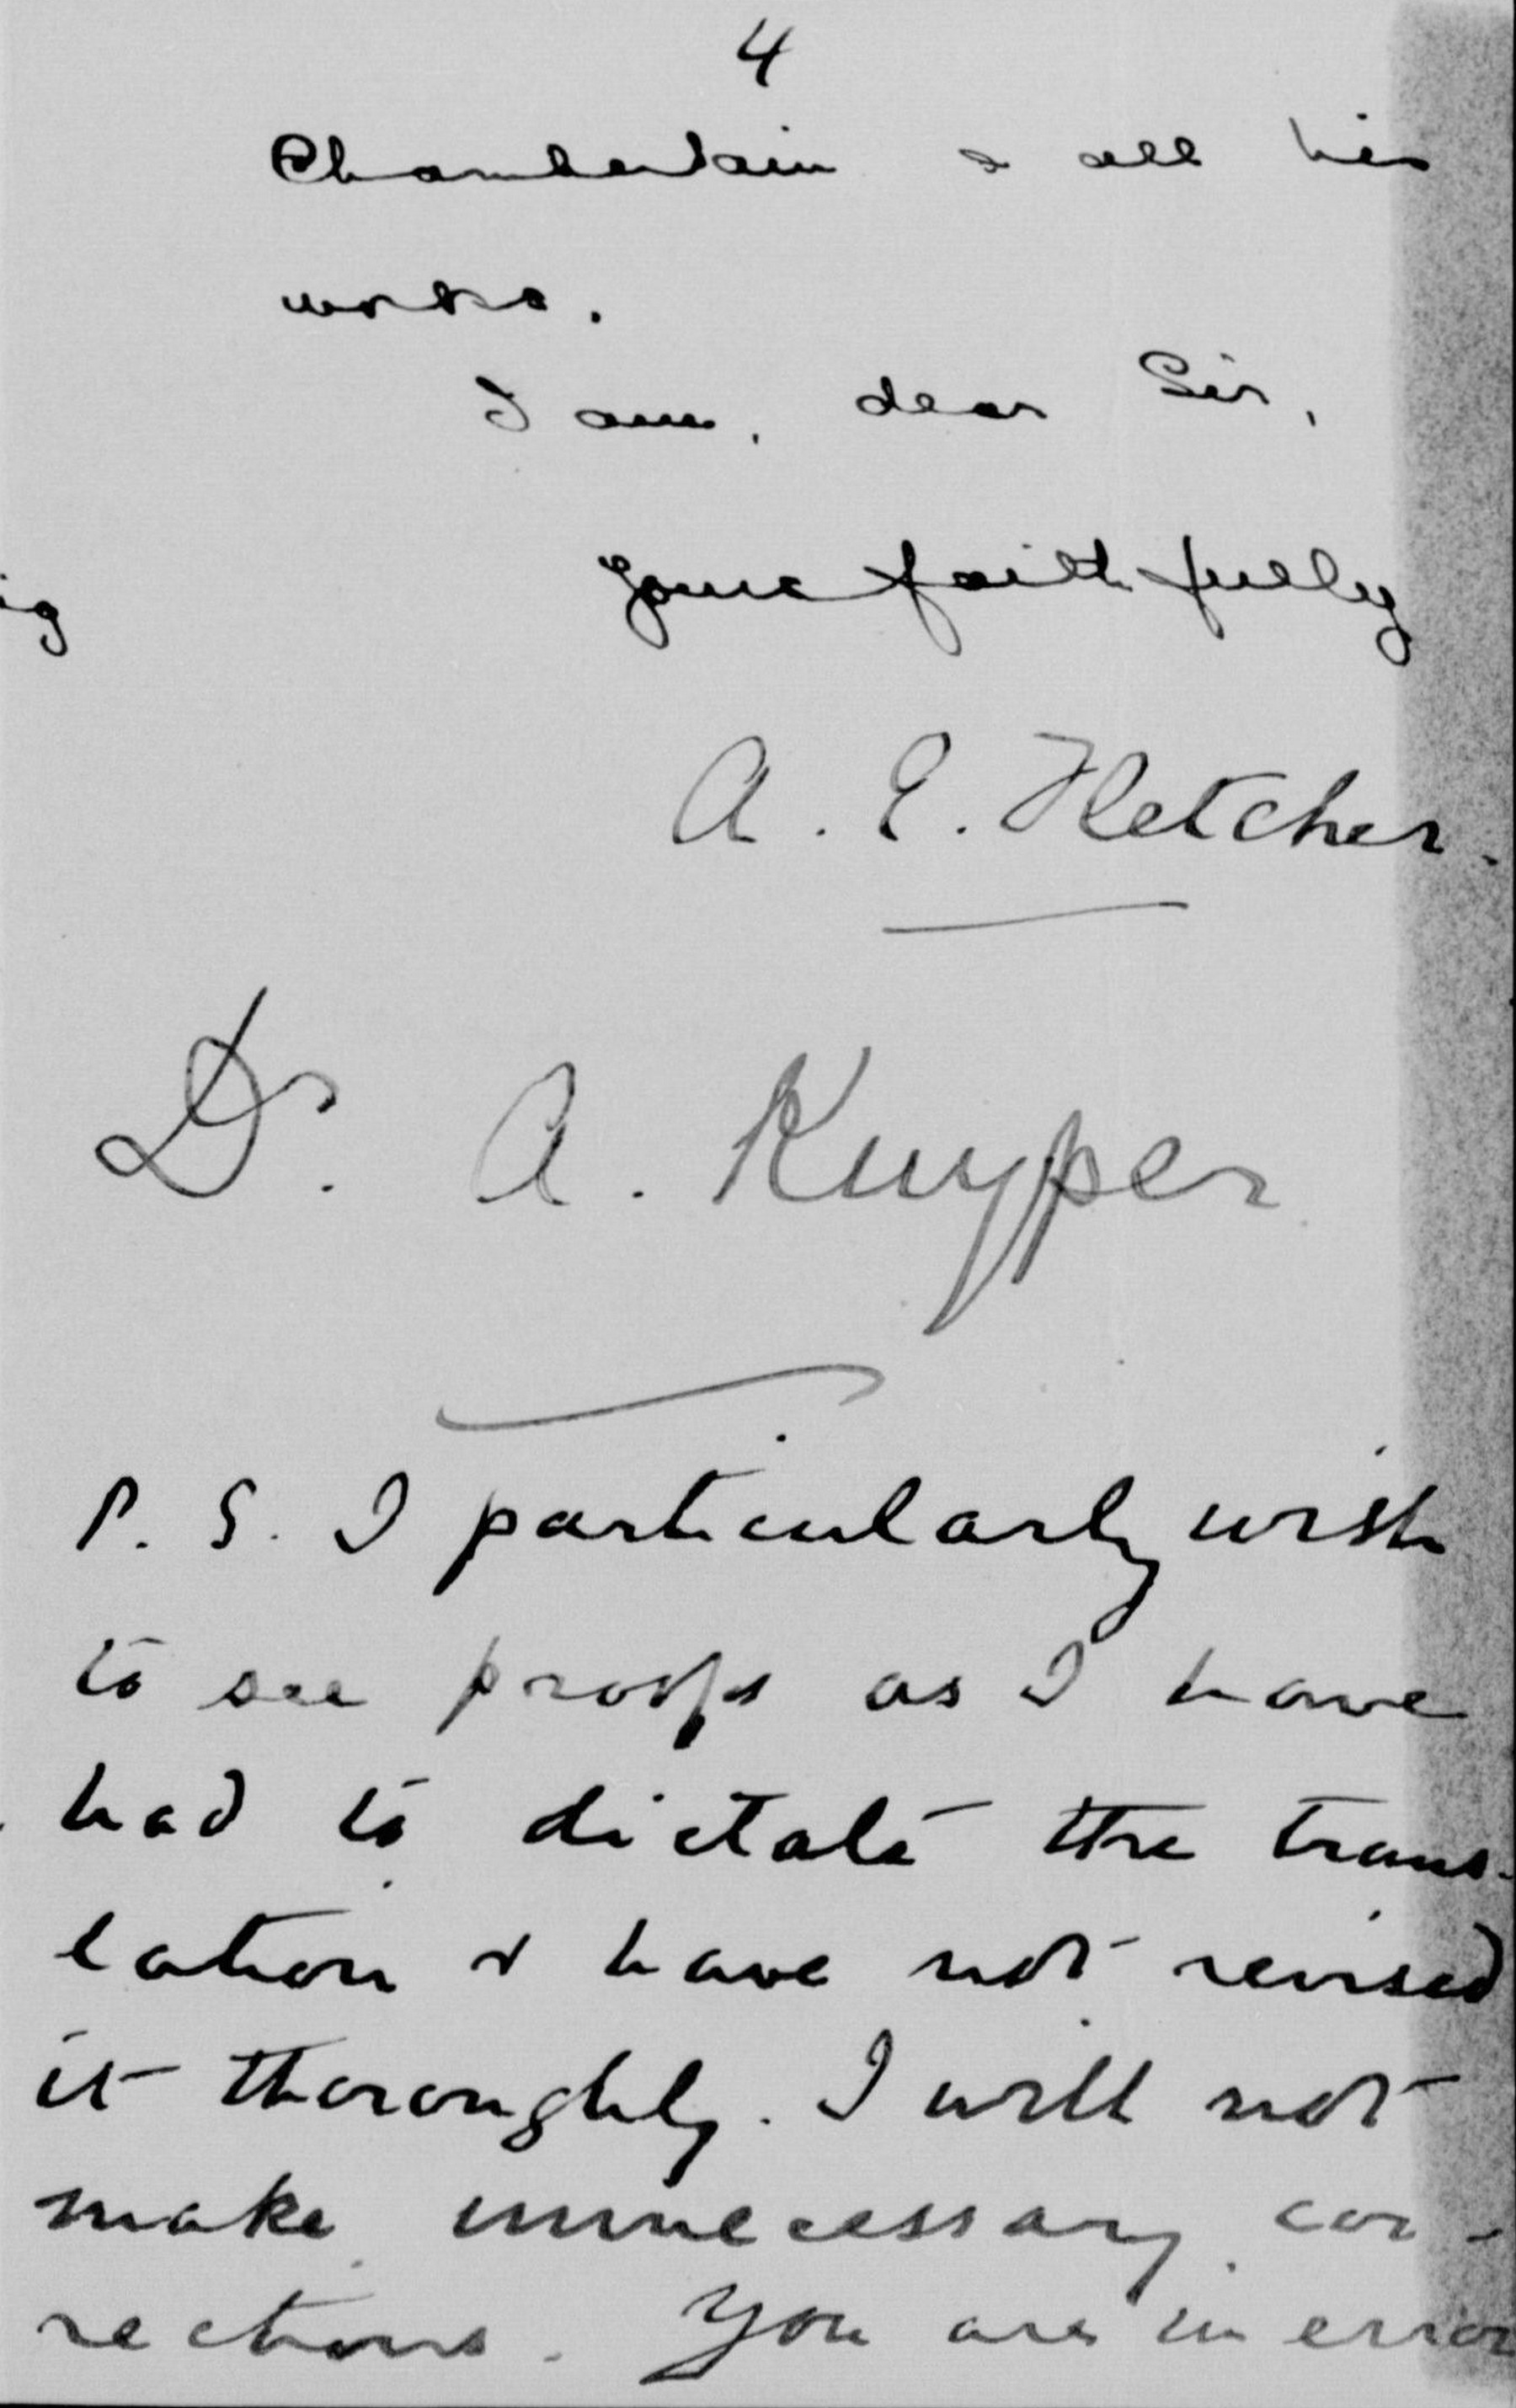 4
Chamberlain & all his
works.
I am, dear Sir,
Yours faithfully
A. E. Fletcher.
Dr. A. Kuyper
P. S. I particularly wish
to see proofs as I have
had to dictate the trans-
lation & have not revised
it thoroughly. I will not
make unnecessary cor-
rections. You are in error